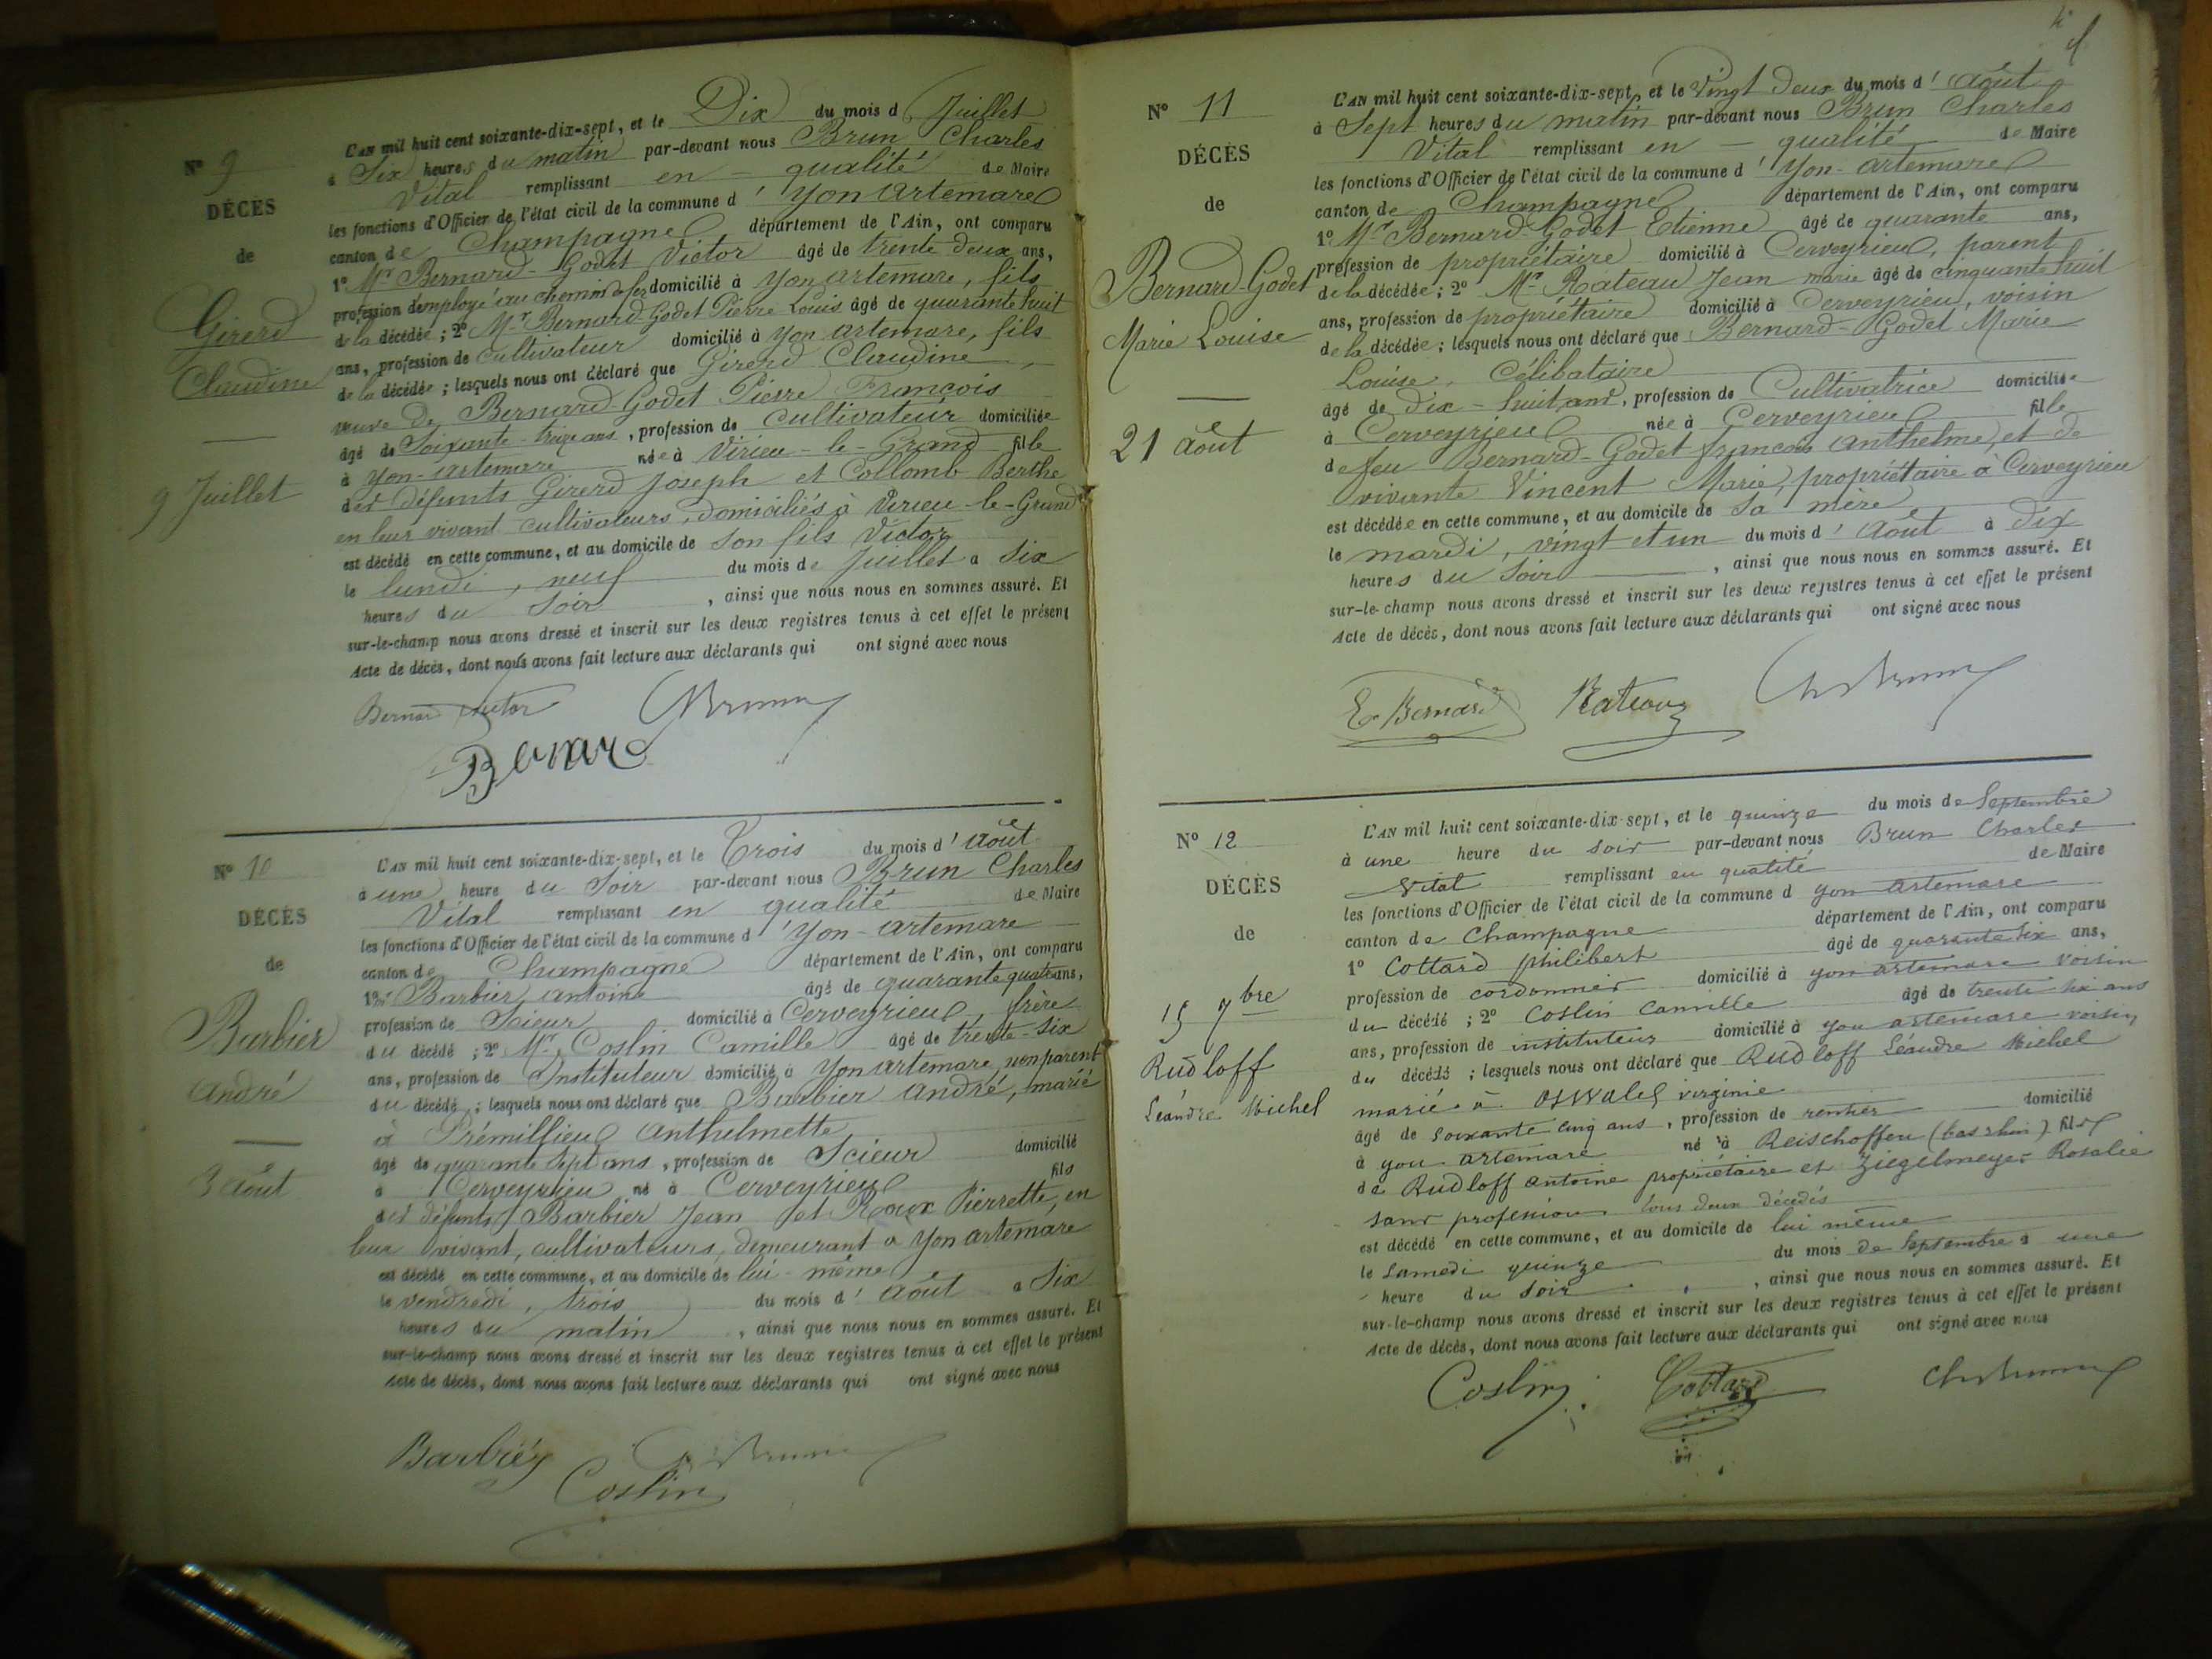 Nº 9
DÉCÈS
de
Girerd
Claudine
9 Juillet
L'AN mil huit cent soixante-dix-sept, et le Dix du mois d Juillet
à Six heures du matin par-devant nous Brun Charles
Vital remplissant en qualité de Maire
les fonctions d'Officier de l'état civil de la commune d' Yon artemare
canton de Champagne département de l'Ain, ont comparu
1º Mr Bernard-Godet Victor âgé de trente deux ans,
profession d'employé au chemin de fer domicilié à Yon artemare, fils
de la décédée ; 2º Mr Bernard-Godet Pierre Louis âgé de quarante huit
ans, profession de cultivateur domicilié à Yon artemare, fils
de la décédée ; lesquels nous ont déclaré que Girerd Claudine,
veuve de Bernard-Godet Pierre François
âgé de Soixante-treize ans, profession de cultivateur domiciliée
à Yon-artemare née à Virieu-le-Grand fille
des défunts Girerd Joseph et Collomb Berthe
en leur vivant cultivateurs, domiciliés à Virieu-le-Grand
est décédé en cette commune, et au domicile de son fils Victor
le lundi, neuf du mois de Juillet à six
heures du soir, ainsi que nous nous en sommes assuré. Et
sur-le-champ nous avons dressé et inscrit sur les deux registres tenus à cet effet le présent
Acte de décès, dont nous avons fait lecture aux déclarants qui ont signé avec nous
Bernard Victor Ch Brun
Bernard
Nº 10
DÉCÈS
de
Barbier
André
3 août
L'AN mil huit cent soixante-dix-sept, et le Trois du mois d' août
à une heure du Soir par-devant nous Brun Charles
Vital remplissant en qualité de Maire
les fonctions d'Officier de l'état civil de la commune d' Yon-artemare
canton de Champagne département de l'Ain, ont comparu
1º Mr Barbier antoine âgé de quarante quatre ans,
profession de Scieur domicilié à Cerveyrieu, frère
du décédé ; 2º Mr Coslin Camille âgé de trente-six
ans, profession de Instituteur domicilié à Yon artemare, non parent
du décédé ; lesquels nous ont déclaré que Barbier André, marié
à Prémillieu Anthelmette
âgé de quarante sept ans, profession de Scieur domicilié
à Cerveyrieu né à Cerveyrieu fils
des défunts Barbier Jean et Roux Pierrette, en
leur vivant, cultivateurs, demeurant à Yon artemare
est décédé en cette commune, et au domicile de lui-même
le vendredi, trois du mois d' août à Six
heures du matin, ainsi que nous nous en sommes assuré. Et
sur-le-champ nous avons dressé et inscrit sur les deux registres tenus à cet effet le présent
Acte de décès, dont nous avons fait lecture aux déclarants qui ont signé avec nous
Barbier Ch Brun
Coslin
Nº 11
DÉCÈS
de
Bernard-Godet
Marie Louise
21 août
L'AN mil huit cent soixante-dix-sept, et le Vingt Deux du mois d' août
à Sept heures du matin par-devant nous Brun Charles
Vital remplissant en - qualité de Maire
les fonctions d'Officier de l'état civil de la commune d' Yon-artemare
canton de Champagne département de l'Ain, ont comparu
1º Mr Bernard-Godet Etienne âgé de quarante ans,
profession de propriétaire domicilié à Cerveyrieu, parent
de la décédée ; 2º Mr Rateau Jean marie âgé de cinquante huit
ans, profession de propriétaire domicilié à Cerveyrieu, voisin
de la décédée ; lesquels nous ont déclaré que Bernard-Godet Marie
Louise, Célibataire
âgé de dix-huit ans, profession de Cultivatrice domiciliée
à Cerveyrieu née à Cerveyrieu fille
de feu Bernard-Godet françois Anthelme, et de
vivante Vincent Marie, propriétaire à Cerveyrieu
est décédée en cette commune, et au domicile de sa mère
le mardi, vingt et un du mois d' Août à dix
heures du Soir, ainsi que nous nous en sommes assuré. Et
sur-le-champ nous avons dressé et inscrit sur les deux registres tenus à cet effet le présent
Acte de décès, dont nous avons fait lecture aux déclarants qui ont signé avec nous
E Bernard Rateau Ch Brun
Nº 12
DÉCÈS
de
15 7bre
Rudloff
Léandre Michel
L'AN mil huit cent soixante-dix-sept, et le quinze du mois de Septembre
à une heure du soir par-devant nous Brun Charles
Vital remplissant en qualité de Maire
les fonctions d'Officier de l'état civil de la commune d yon artemare
canton de Champagne département de l'Ain, ont comparu
1º Cottard philibert âgé de quarante six ans,
profession de cordonnier domicilié à yon artemare voisin
du décédé ; 2º Coslin Camille âgé de trente six ans
ans, profession de instituteur domicilié à yon artemare voisin
du décédé ; lesquels nous ont déclaré que Rudloff Léandre Michel
marié à Oswald virginie
âgé de soixante cinq ans, profession de rentier domicilié
à yon artemare né à Reischoffen (bas rhin) fils
de Rudloff antoine propriétaire et Ziegelmeyer Rosalie
sans profession tous deux décédés
est décédé en cette commune, et au domicile de lui même
le samedi quinze du mois de Septembre à une
heure du soir, ainsi que nous nous en sommes assuré. Et
sur-le-champ nous avons dressé et inscrit sur les deux registres tenus à cet effet le présent
Acte de décès, dont nous avons fait lecture aux déclarants qui ont signé avec nous
Coslin Cottard Ch Brun